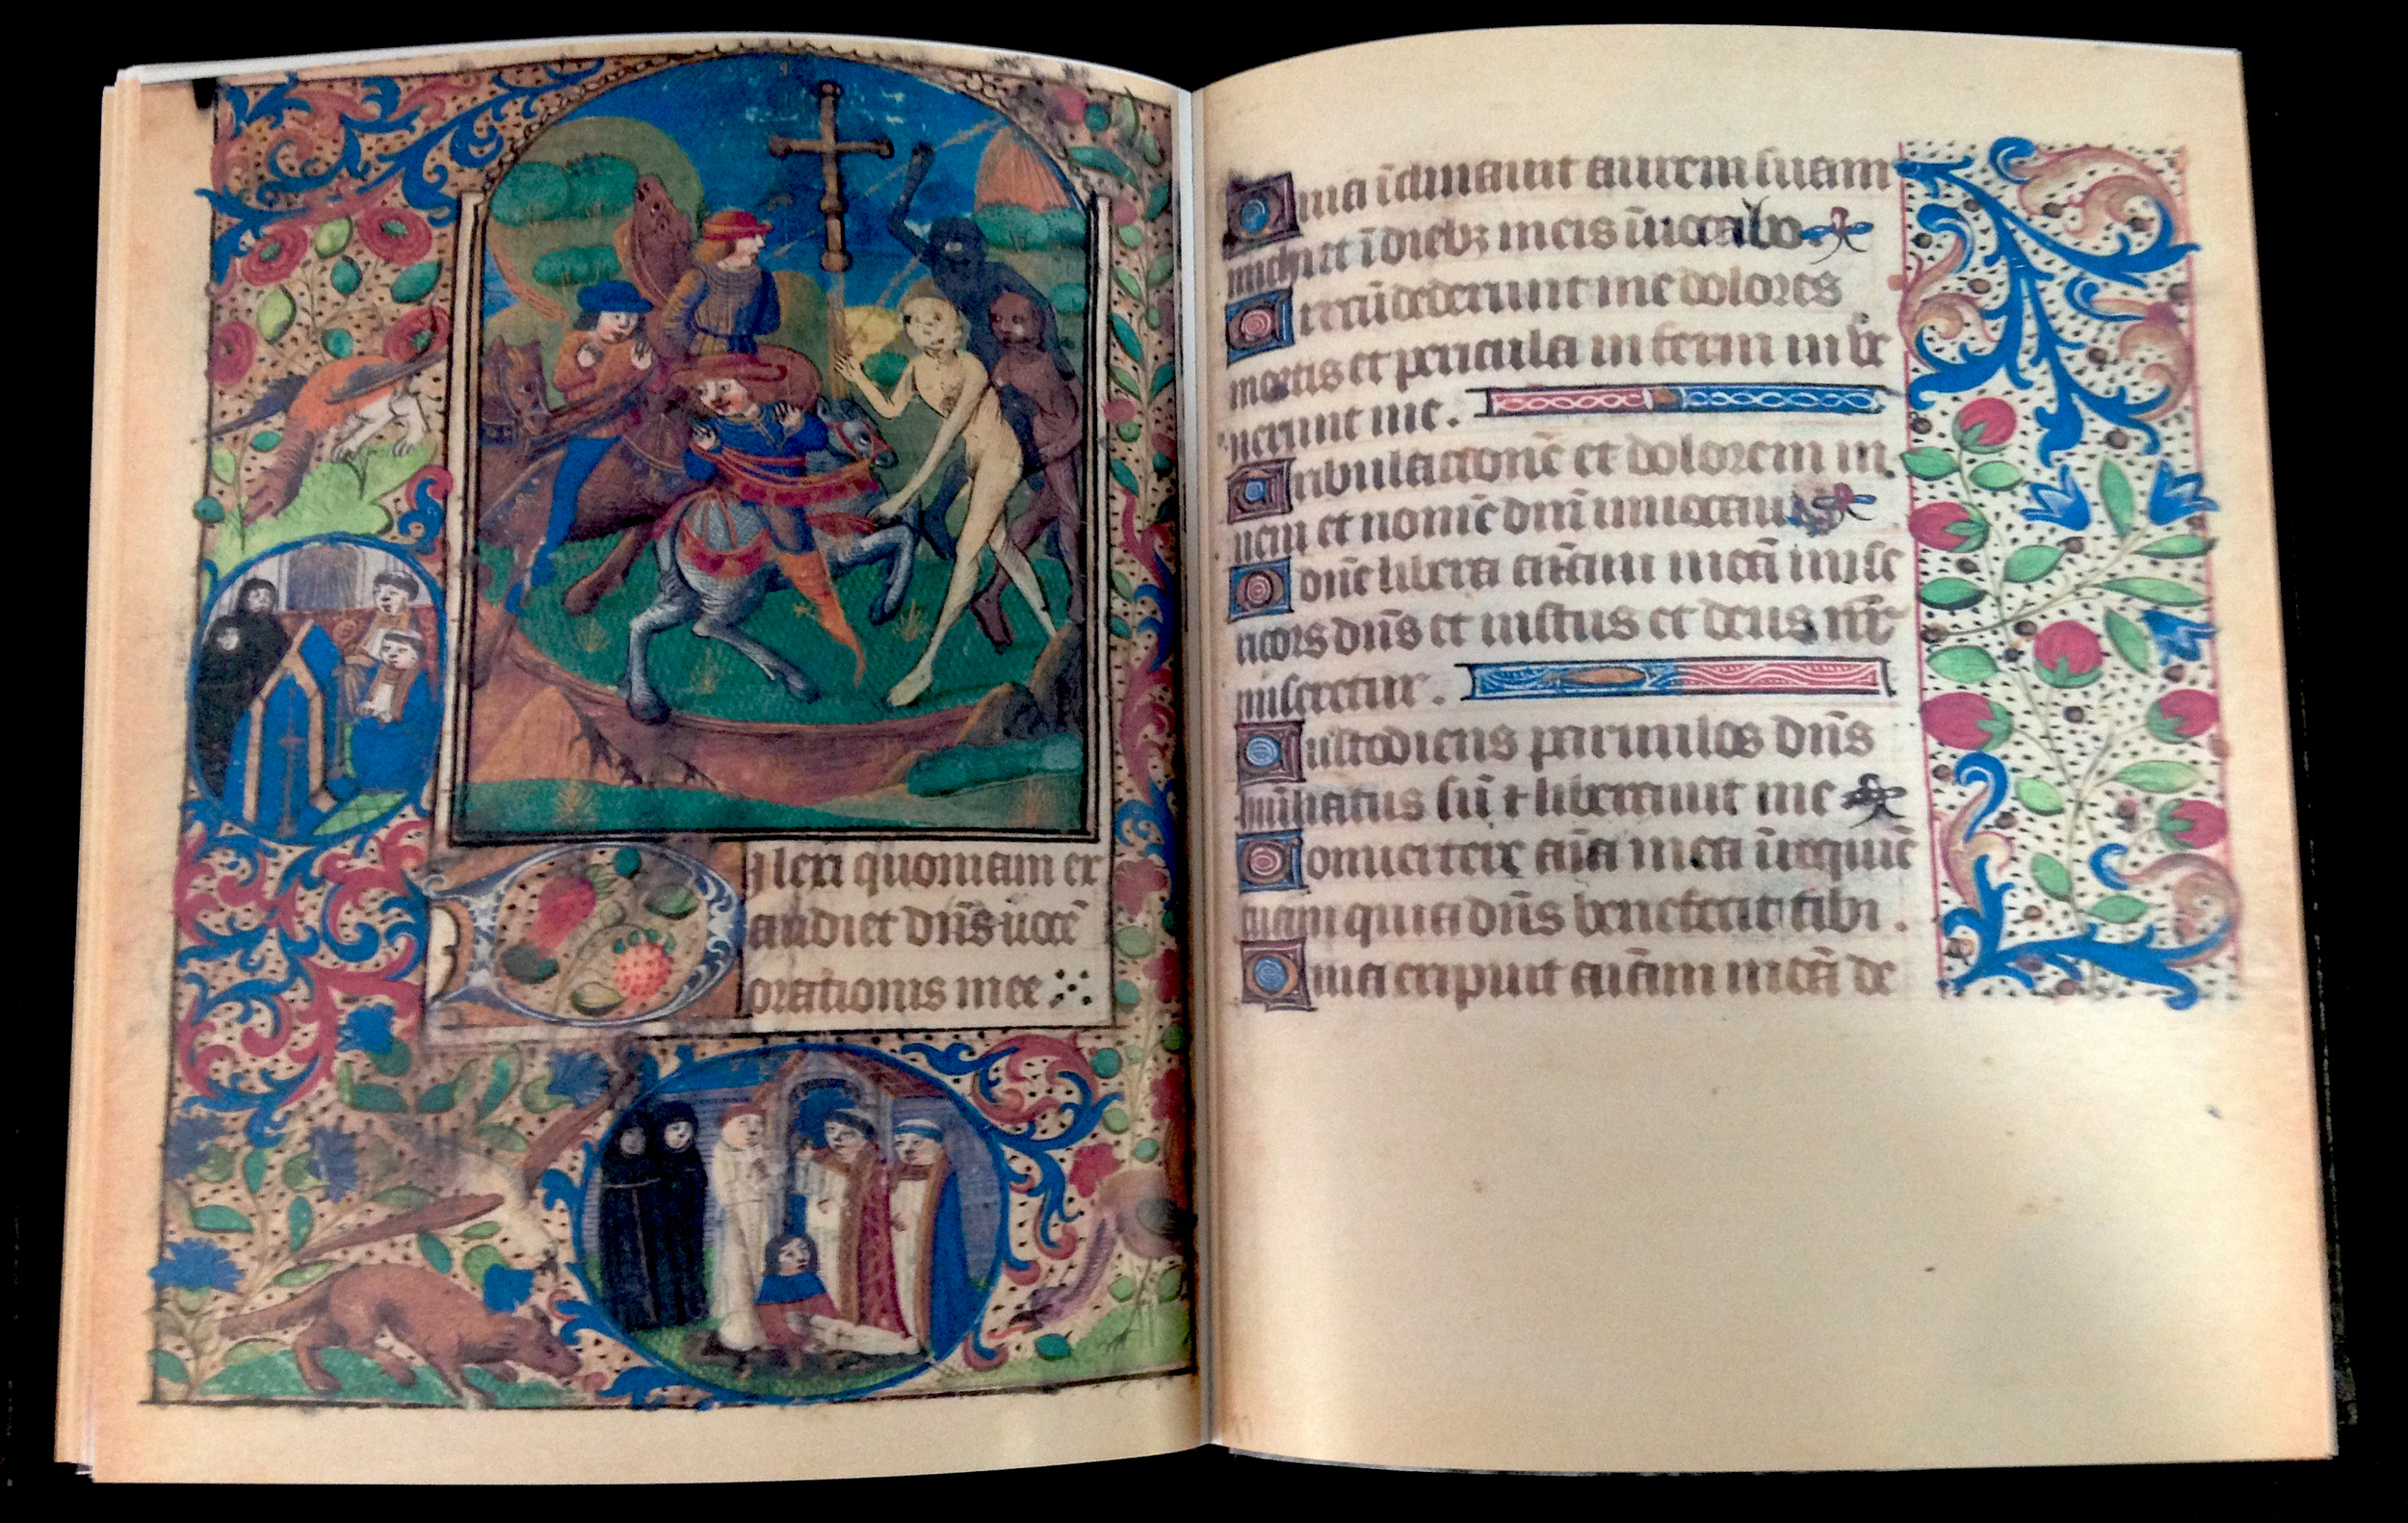 Dilexi quoniam ex
audiet dñs uocẽ
orationis mee
Quia ĩclinauit aurem suam
michi et ĩ diebꝫ meis ĩuocabo
Circũdederunt me dolores
mortis et pericula inferni inue
nerunt me.
Tribulacionẽ et dolorem in
ueni et nomẽ dñi inuocaui
O dñe libera aĩam meã mise
ricors dñs et iustus et deus nr̃
miseretur.
Custodiens paruulos dñs
humiliatus sũ ⁊ liberauit me
Conuertere aĩa mea ĩ requiẽ
tuam quia dñs benefecit tibi.
Quia eripuit aĩam meã de